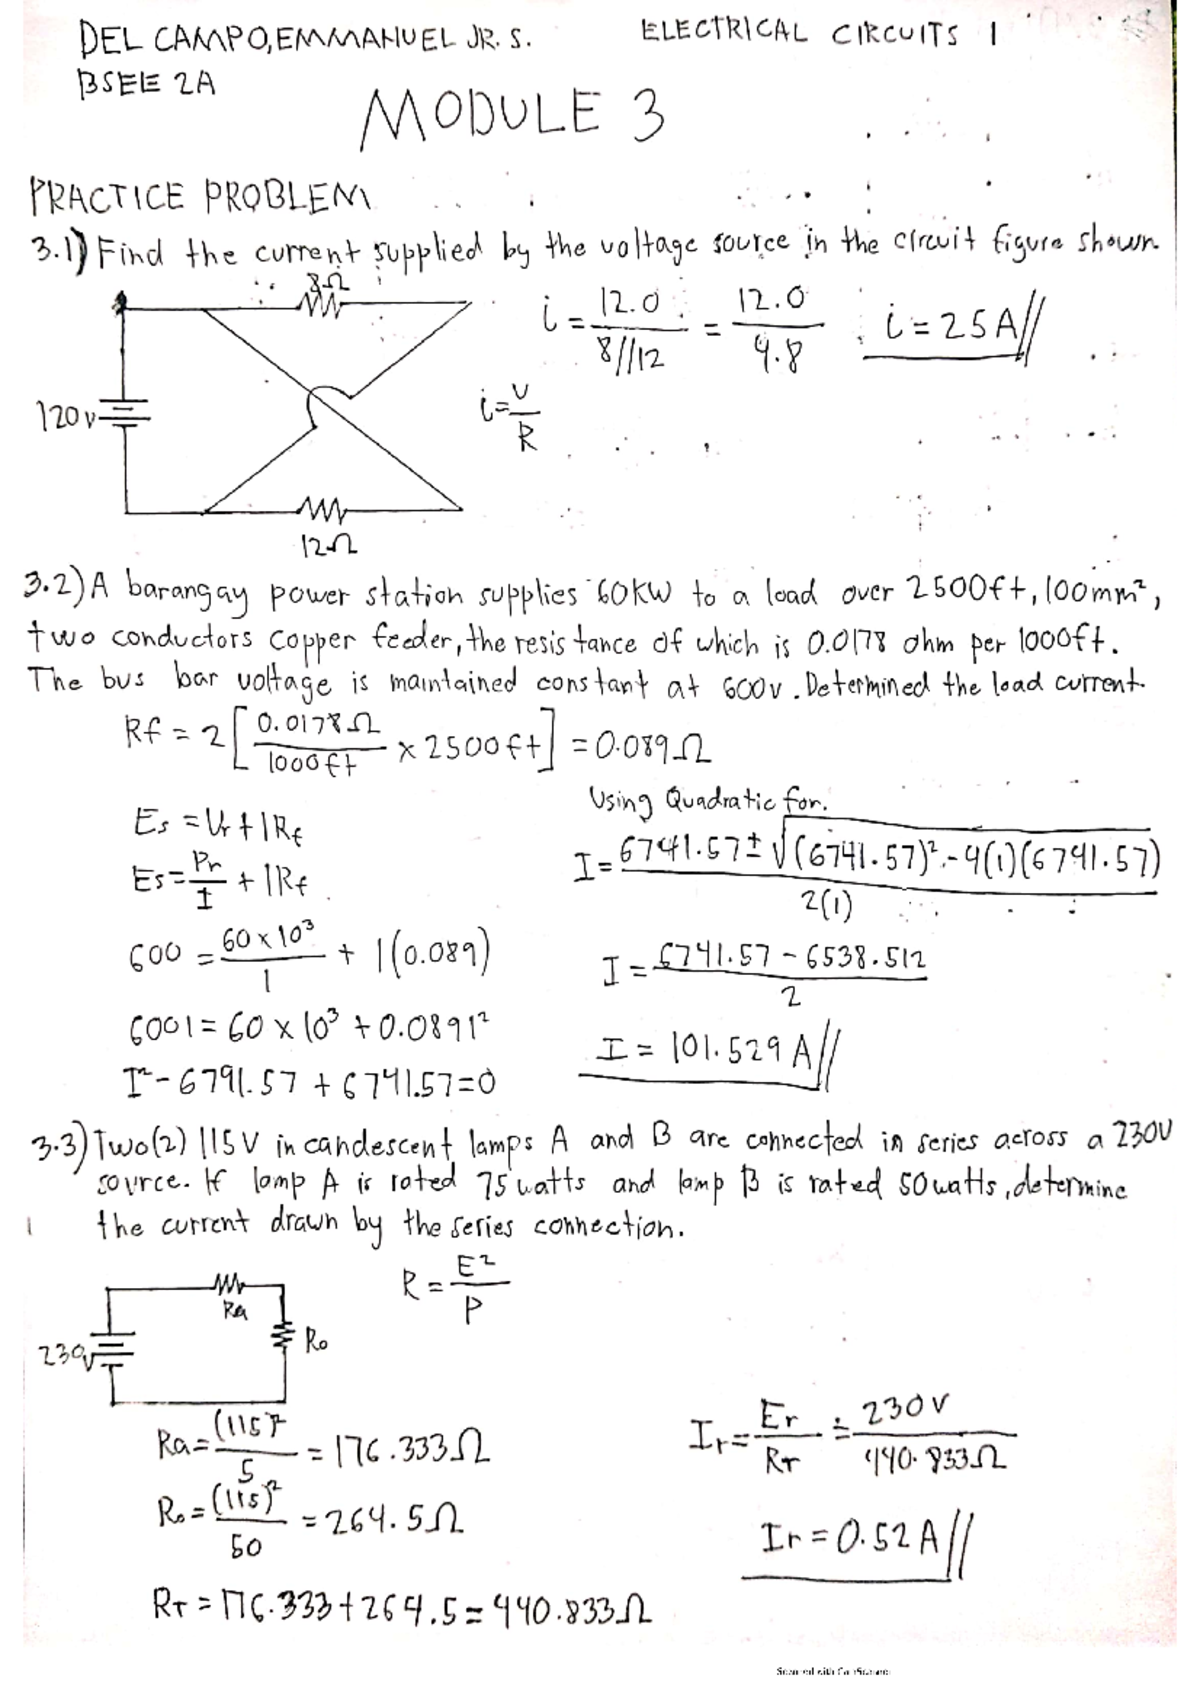 DEL CAMPO,EMMANUEL JR. S.
ELECTRICAL CIRCUITS 1
BSEE 2A
MODULE 3
PRACTICE PROBLEM
3.1) Find the current supplied by the voltage source in the circuit figure shown.
8Ω
i = 12.0 / 8//12 = 12.0 / 4.8
i = 25A//
120v
i = V / R
12Ω
3.2) A barangay power station supplies 60KW to a load over 2500ft, 100mm²,
two conductors copper feeder, the resistance of which is 0.0178 ohm per 1000ft.
The bus bar voltage is maintained constant at 600v. Determined the load current.
Rf = 2[0.0178Ω / 1000ft x 2500ft] = 0.089Ω
Using Quadratic for.
Es = Vr + IRf
Es = Pr / I + IRf
600 = 60 x 10³ / I + I(0.089)
600I = 60 x 10³ + 0.089I²
I² - 6791.57 + 6741.57 = 0
I = 6741.57 ± √(6741.57)² - 4(1)(6741.57) / 2(1)
I = 6741.57 - 6538.512 / 2
I = 101.529 A//
3.3) Two(2) 115V incandescent lamps A and B are connected in series across a 230V
source. If lamp A is rated 75watts and lamp B is rated 50watts, determine
the current drawn by the series connection.
R = E² / P
Ra
Ro
230v
Ra = (115)² / 5 = 176.333Ω
Ro = (115)² / 50 = 264.5Ω
RT = 176.333 + 264.5 = 440.833Ω
Ir = Er / RT = 230V / 440.833Ω
Ir = 0.52A//